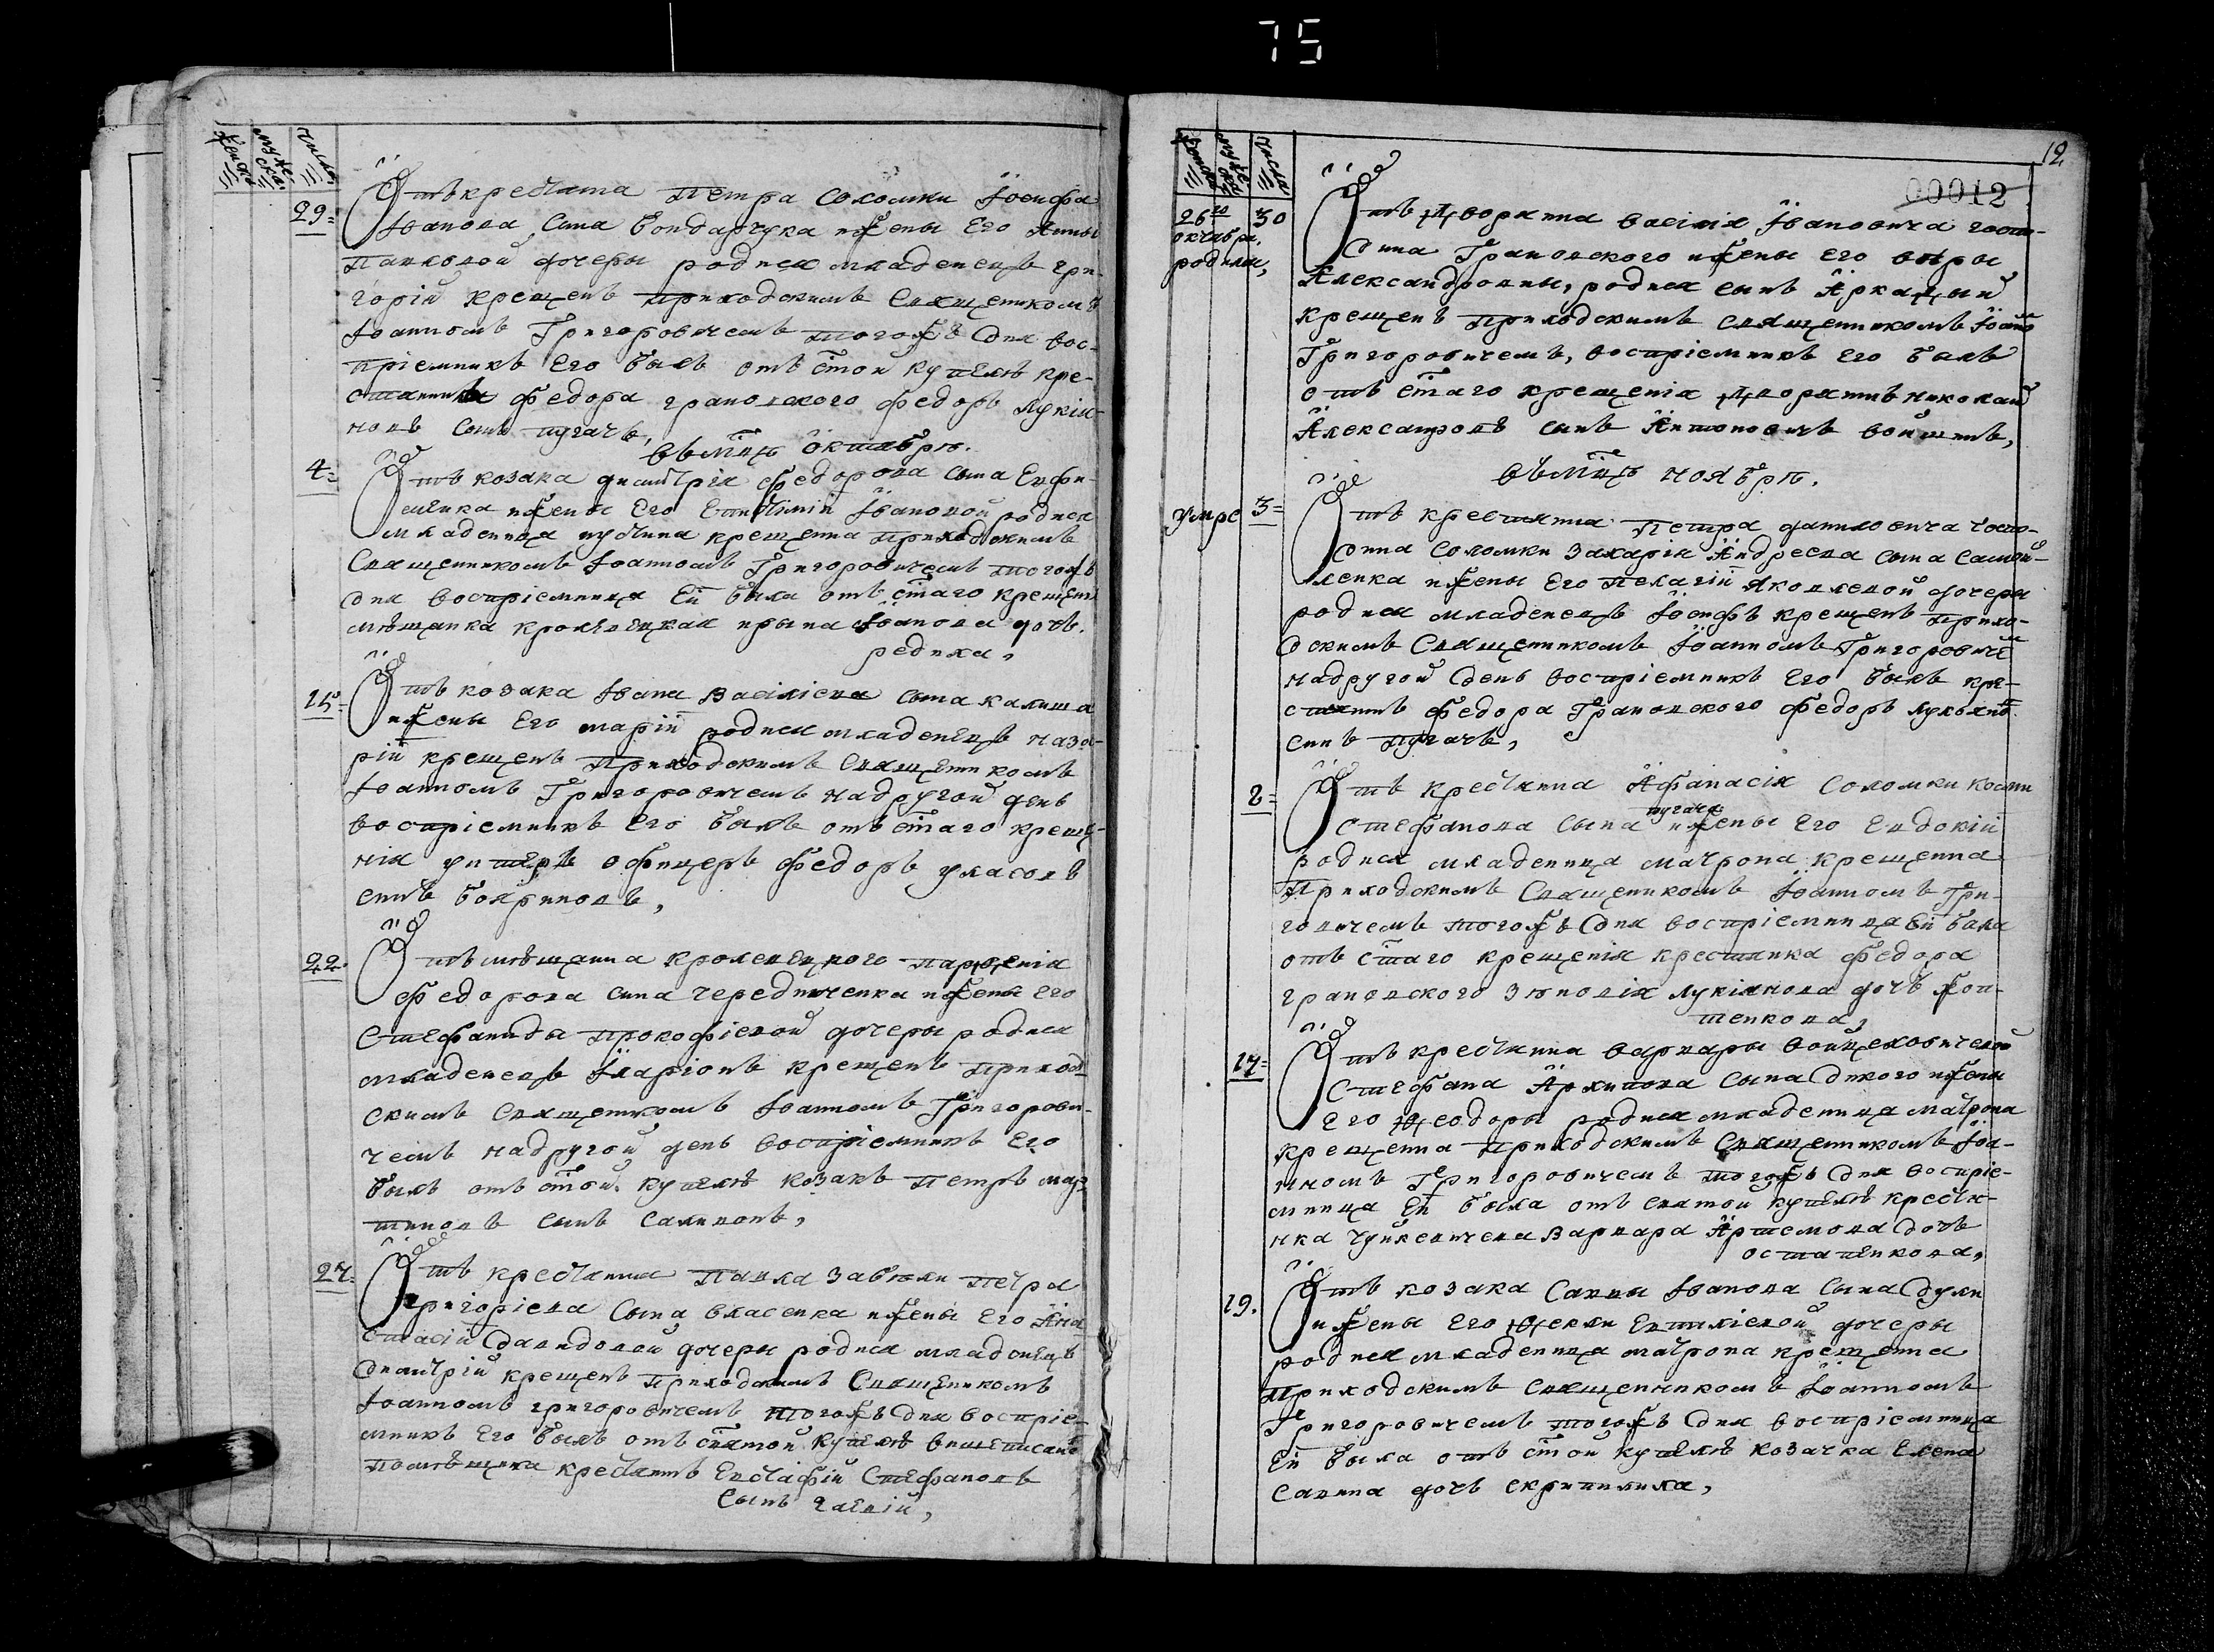 75
женска
мужеска
числа
29
Отъ крестяна Петра Соломки Іосифа
Іванова Сына бондарчука ижены Его Анны
Павловой дочеры родися младенецъ гри-
горій крещенъ приходскимъ Священикомъ
Іоанномъ Григоровичемъ тогожъ дня вос-
пріемникъ Его былъ отъ стой купелѣ кре-
стянинъ федора грановского федоръ Лукія-
новъ Сынъ пугачъ,
въ Мцѣ октябрѣ.
4
Отъ козака дмитрія федорова Сына Евфи-
менка ижены Его Евтимій Івановой родися
младеница иустина крещенна приходскимъ
Священникомъ Іоанномъ Григоровичемъ тогожъ
дня воспріемница Ей была отъ стаго крещенія
мѣщанка кролевецкая ирына Іванова дочъ.
редиха,
15
Отъ козака Івана Василіева Сына калиша
ижены Его маріи родися младенецъ наза-
рій крещенъ Приходскимъ Священикомъ
Іоанномъ Григоровичемъ надругой день
воспріемникъ Его былъ отъ стаго креще-
нія унтеръ офицеръ федоръ уласовъ
синъ бояриновъ,
22
Отъ мѣщанина кролевецкого парфенія
федорова сина чередниченка ижены Его
Стефаниды прокофіевой дочеры родися
младенецъ Іларіонъ крещенъ приход-
скимъ Священикомъ Іоанномъ Григорови-
чемъ надругой день воспріемникъ Его
былъ отъ стой купелѣ козакъ Петръ мар-
тиновъ сынъ Саливонъ,
27
Отъ крестянина Павла Завюли Петра
григоріева Сына власенка ижены Его Ана-
стасій Давидовой дочеры родися младенецъ
дмитрій крещенъ приходскимъ Священикомъ
Іоанномъ григоровичемъ тогожъ дня воспріе-
мникъ Его былъ отъ святой купелѣ вишеписано
помѣщика крестянинъ Евстафій Стефановъ
сынъ гаевій,
12
00012
женска
мужеска
числа
26го 30
октября.
родился,
Отъ дворянина василія Івановича госпо-
дина Грановского ижены Его вѣры
Александровны, родися сынъ Аркадый
крещенъ приходскимъ священникомъ Іоано
Григоровичемъ, воспріемникъ Его былъ
отъ стаго крещенія дворянинъ николай
Александровъ сынъ Антоновичъ войтенъ,
въ Мцѣ ноябрѣ.
умре 3
Отъ крестянина Петра даниловича Госпо-
дина Соломки Захарія Андреева Сына Самой-
ленка ижены Его Пелагій Яковлевой дочеры
родися младенецъ Іосифъ крещенъ прихо-
дскимъ Священникомъ Іоанномъ Григоровиче
надругой день воспріемникъ Его былъ кре-
стянинъ федора Грановского федоръ Лукьяно
синъ пугачъ,
2
Отъ крестянина Афанасія Соломки косми
пугача
Стефанова Сына ижены Его Евдокій
родися младеница матрона крещенна
Приходскимъ Священикомъ Іоанномъ Гри-
говичемъ тогожъ дня воспріемница Ей была
отъ стаго крещенія крестянка федора
грановского Зѣновія лукіянова дочъ жов-
тенкова,
17
Отъ крестянина варвары войцеховичевой
Стефана Архипова Сына дикого ижены
Его феодоры родися младеница матрона
крещенна приходскимъ Священникомъ Іоа-
нномъ Григоровичемъ тогожъ дня воспріе-
мница Ей была отъ святой купелѣ крестя-
нка чуйкевичева варвара Артемова дочъ
остапенкова,
19.
Отъ козака Саввы Іванова Сына дули
ижены Его феклы Евтихіевой дочеры
родися младеница матрона крещенна
Приходскимъ священникомъ Іоанномъ
Григоровичемъ тогожъ дня воспріемница
Ей была отъ стой купелѣ козачка Елена
Савина дочъ скрипилиха,